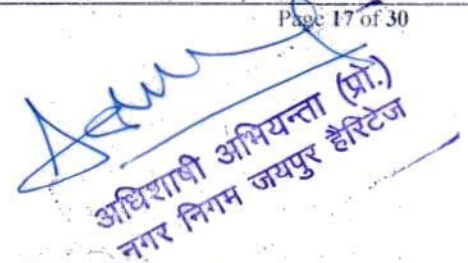 Page 17 of 30
अधिशाषी अभियन्ता (प्रो.)
नगर निगम जयपुर हैरिटेज